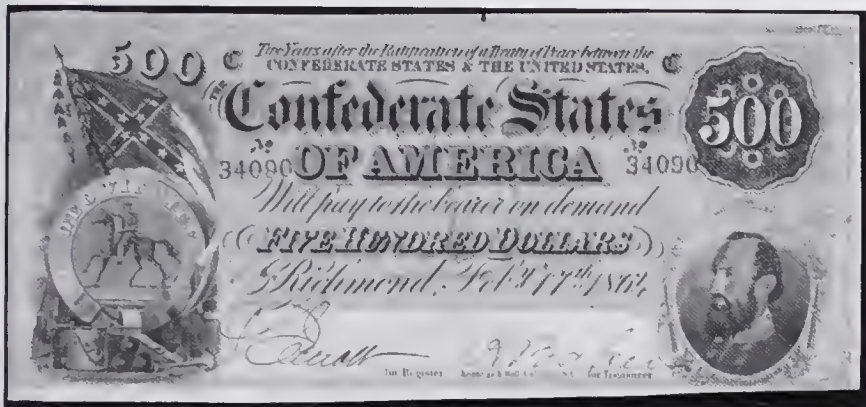 500 C Two Years after the Ratification of a Treaty of Peace between the C
CONFEDERATE STATES & THE UNITED STATES,
Confederate States
500
No No
34090 OF AMERICA 34090
Will pay to the bearer on demand
FIVE HUNDRED DOLLARS
Richmond, Feby 17th 1864
for Register for Treasurer